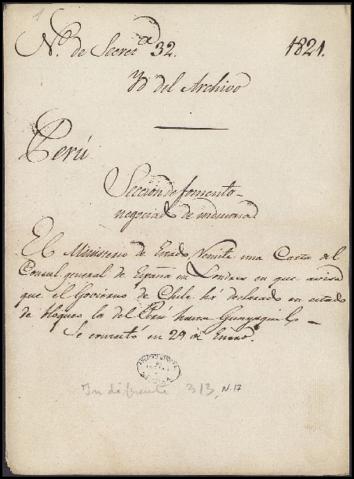 N.º de Secret.ª 32. 1821.
Yd del Archivo
Perú
Seccion de fomento
negociado de indiferente
El Ministerio de Estado remite una Carta del
Consul general de España en Londres en que avisa
que el Govierno de Chile há declarado en estado
de bloqueo la del Perú hasta Guayaquil
Se contextó en 29 de Enero.
Indiferente 313, N.17